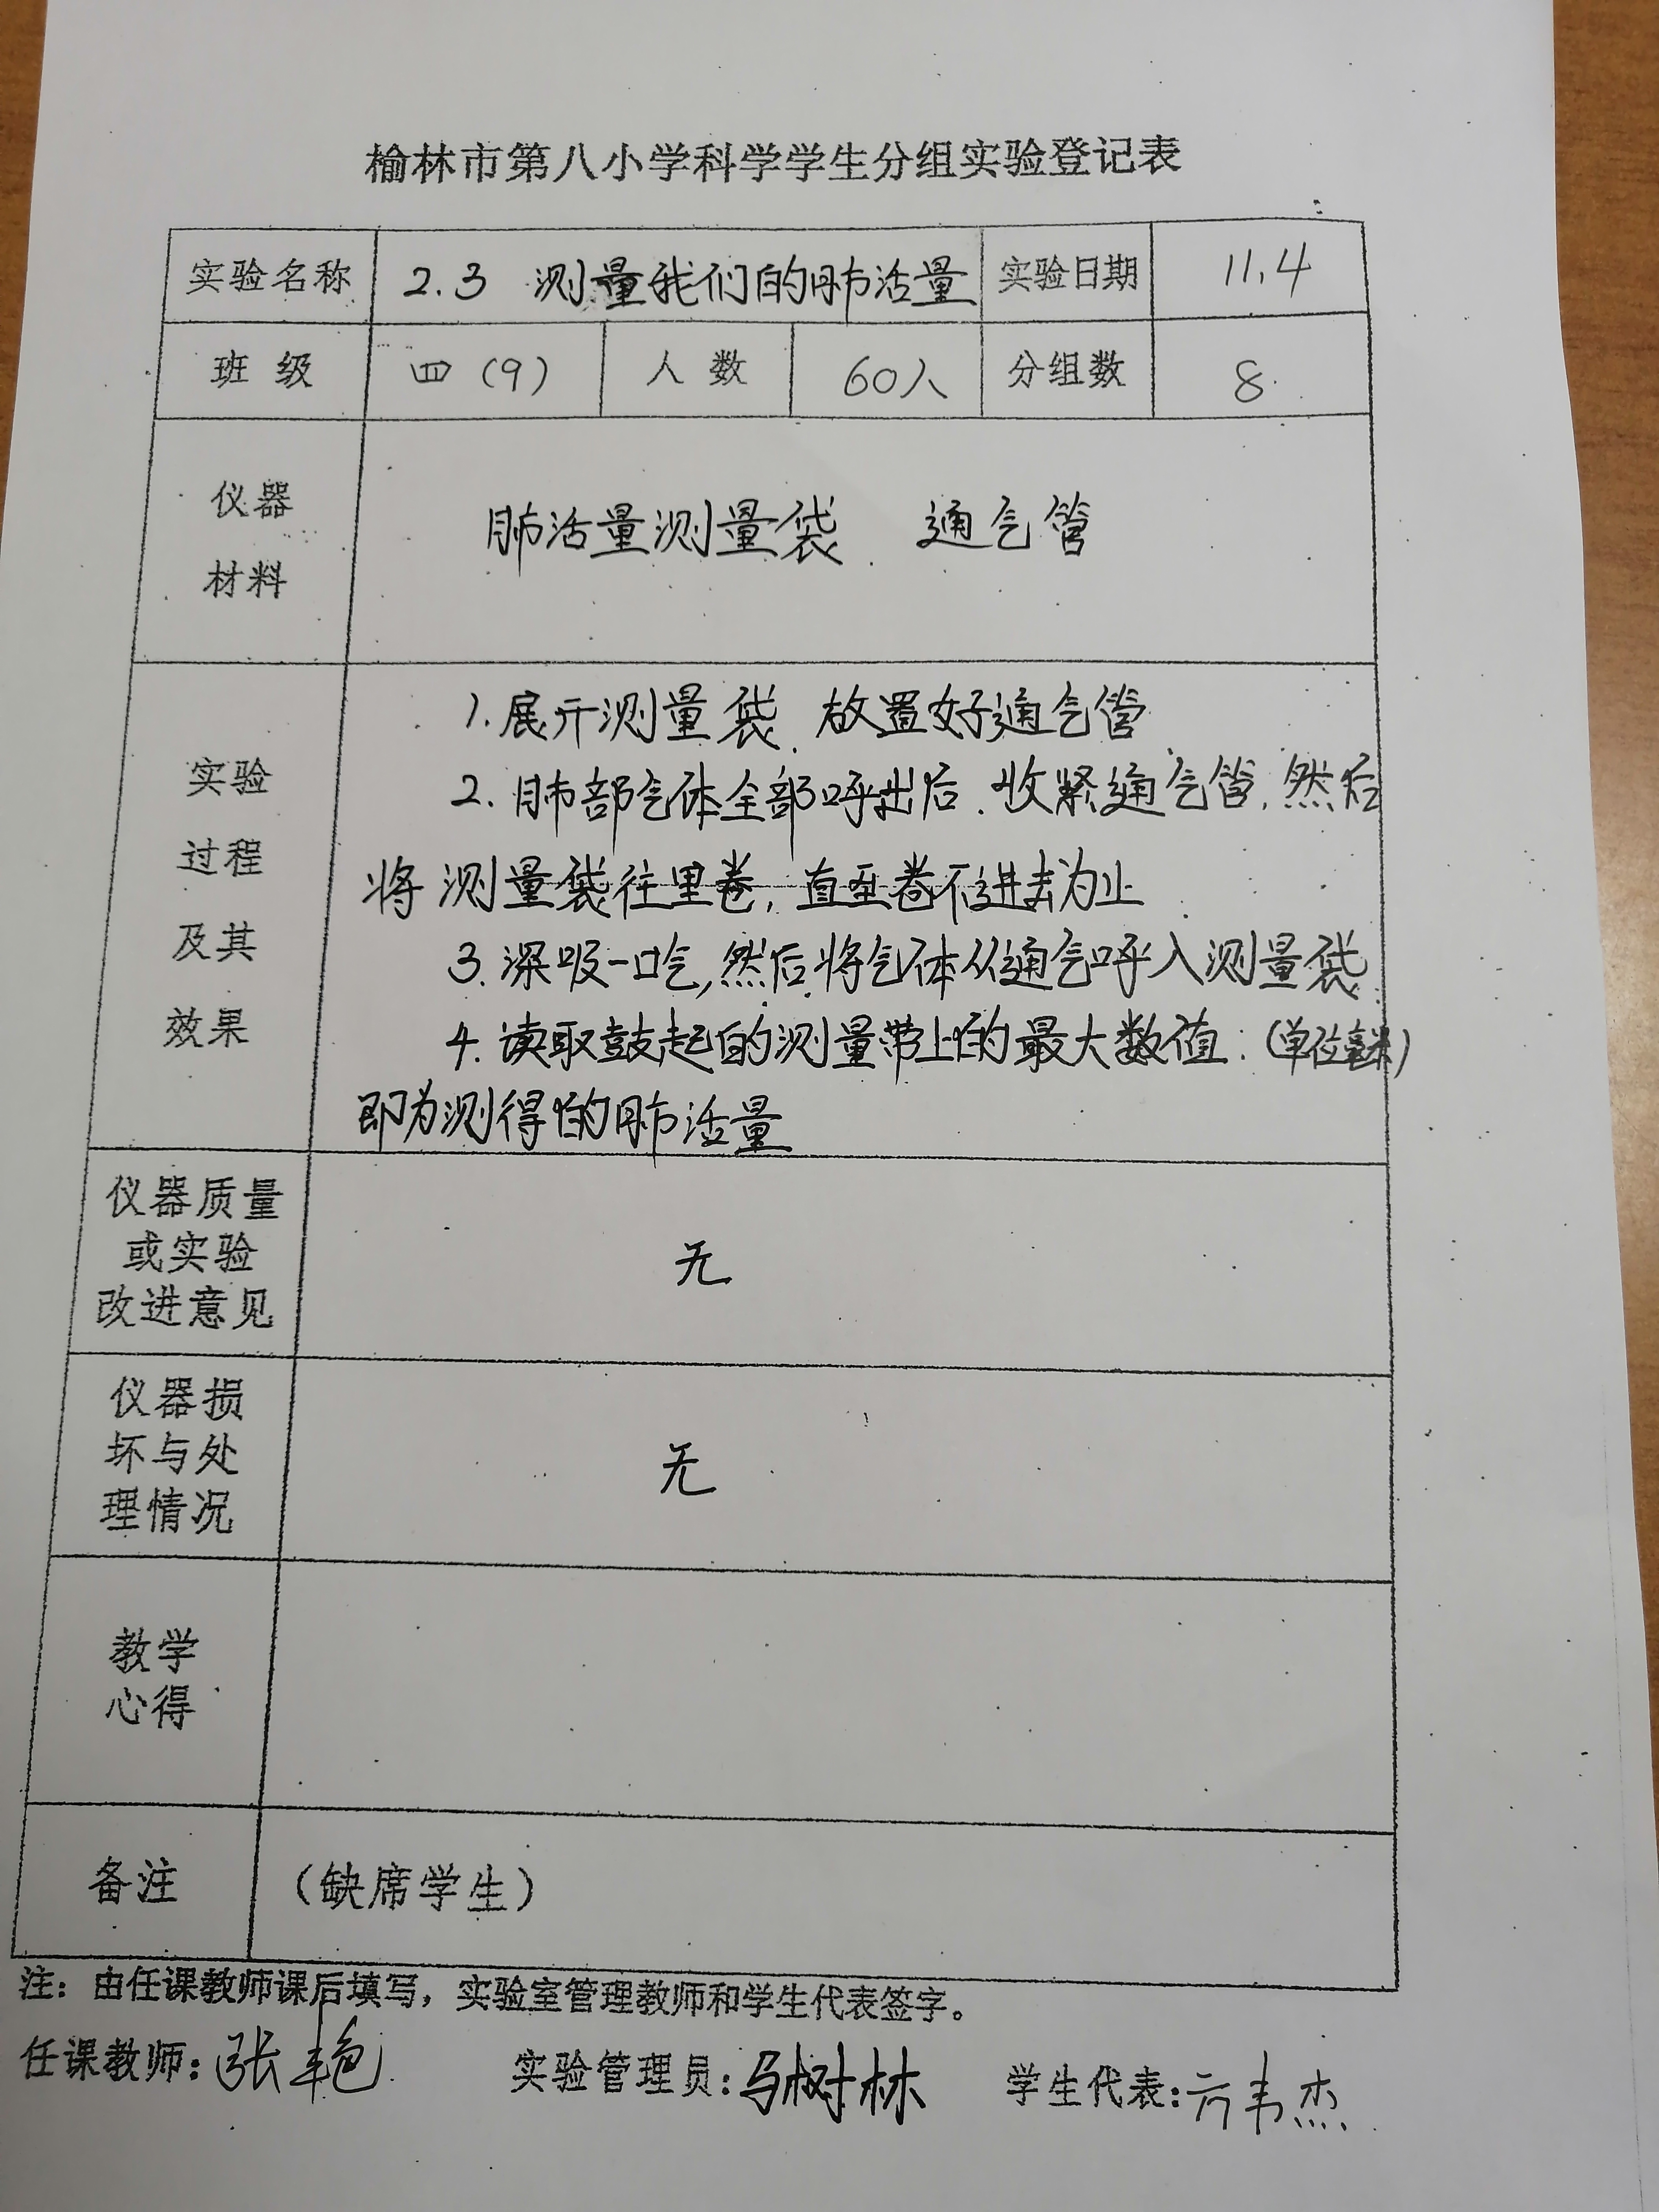 榆林市第八小学科学学生分组实验登记表
实验名称 2.3 测量我们的肺活量 实验日期 11.4
班级 四(9) 人数 60人 分组数 8
仪器
材料
肺活量测量袋 通气管
实验
过程
及其
效果
1.展开测量袋.放置好通气管
2.肺部气体全部呼出后.收紧通气管,然后
将测量袋往里卷,直至卷不进去为止
3.深吸一口气,然后将气体从通气呼入测量袋
4.读取鼓起的测量带上的最大数值:(单位毫米)
即为测得的肺活量
仪器质量
或实验
改进意见
无
仪器损
坏与处
理情况
无
教学
心得
备注 (缺席学生)
注:由任课教师课后填写,实验室管理教师和学生代表签字。
任课教师:张艳 实验管理员:马树林 学生代表: